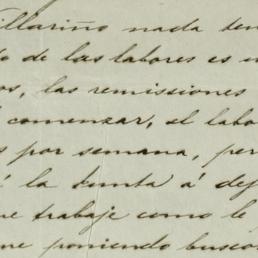 Villariño nada ten
de las labores es u
os, las remisiones
comenzar, el labo
s por semana, per
á la Junta á def
ue trabaje como le
ne poniendo buscos